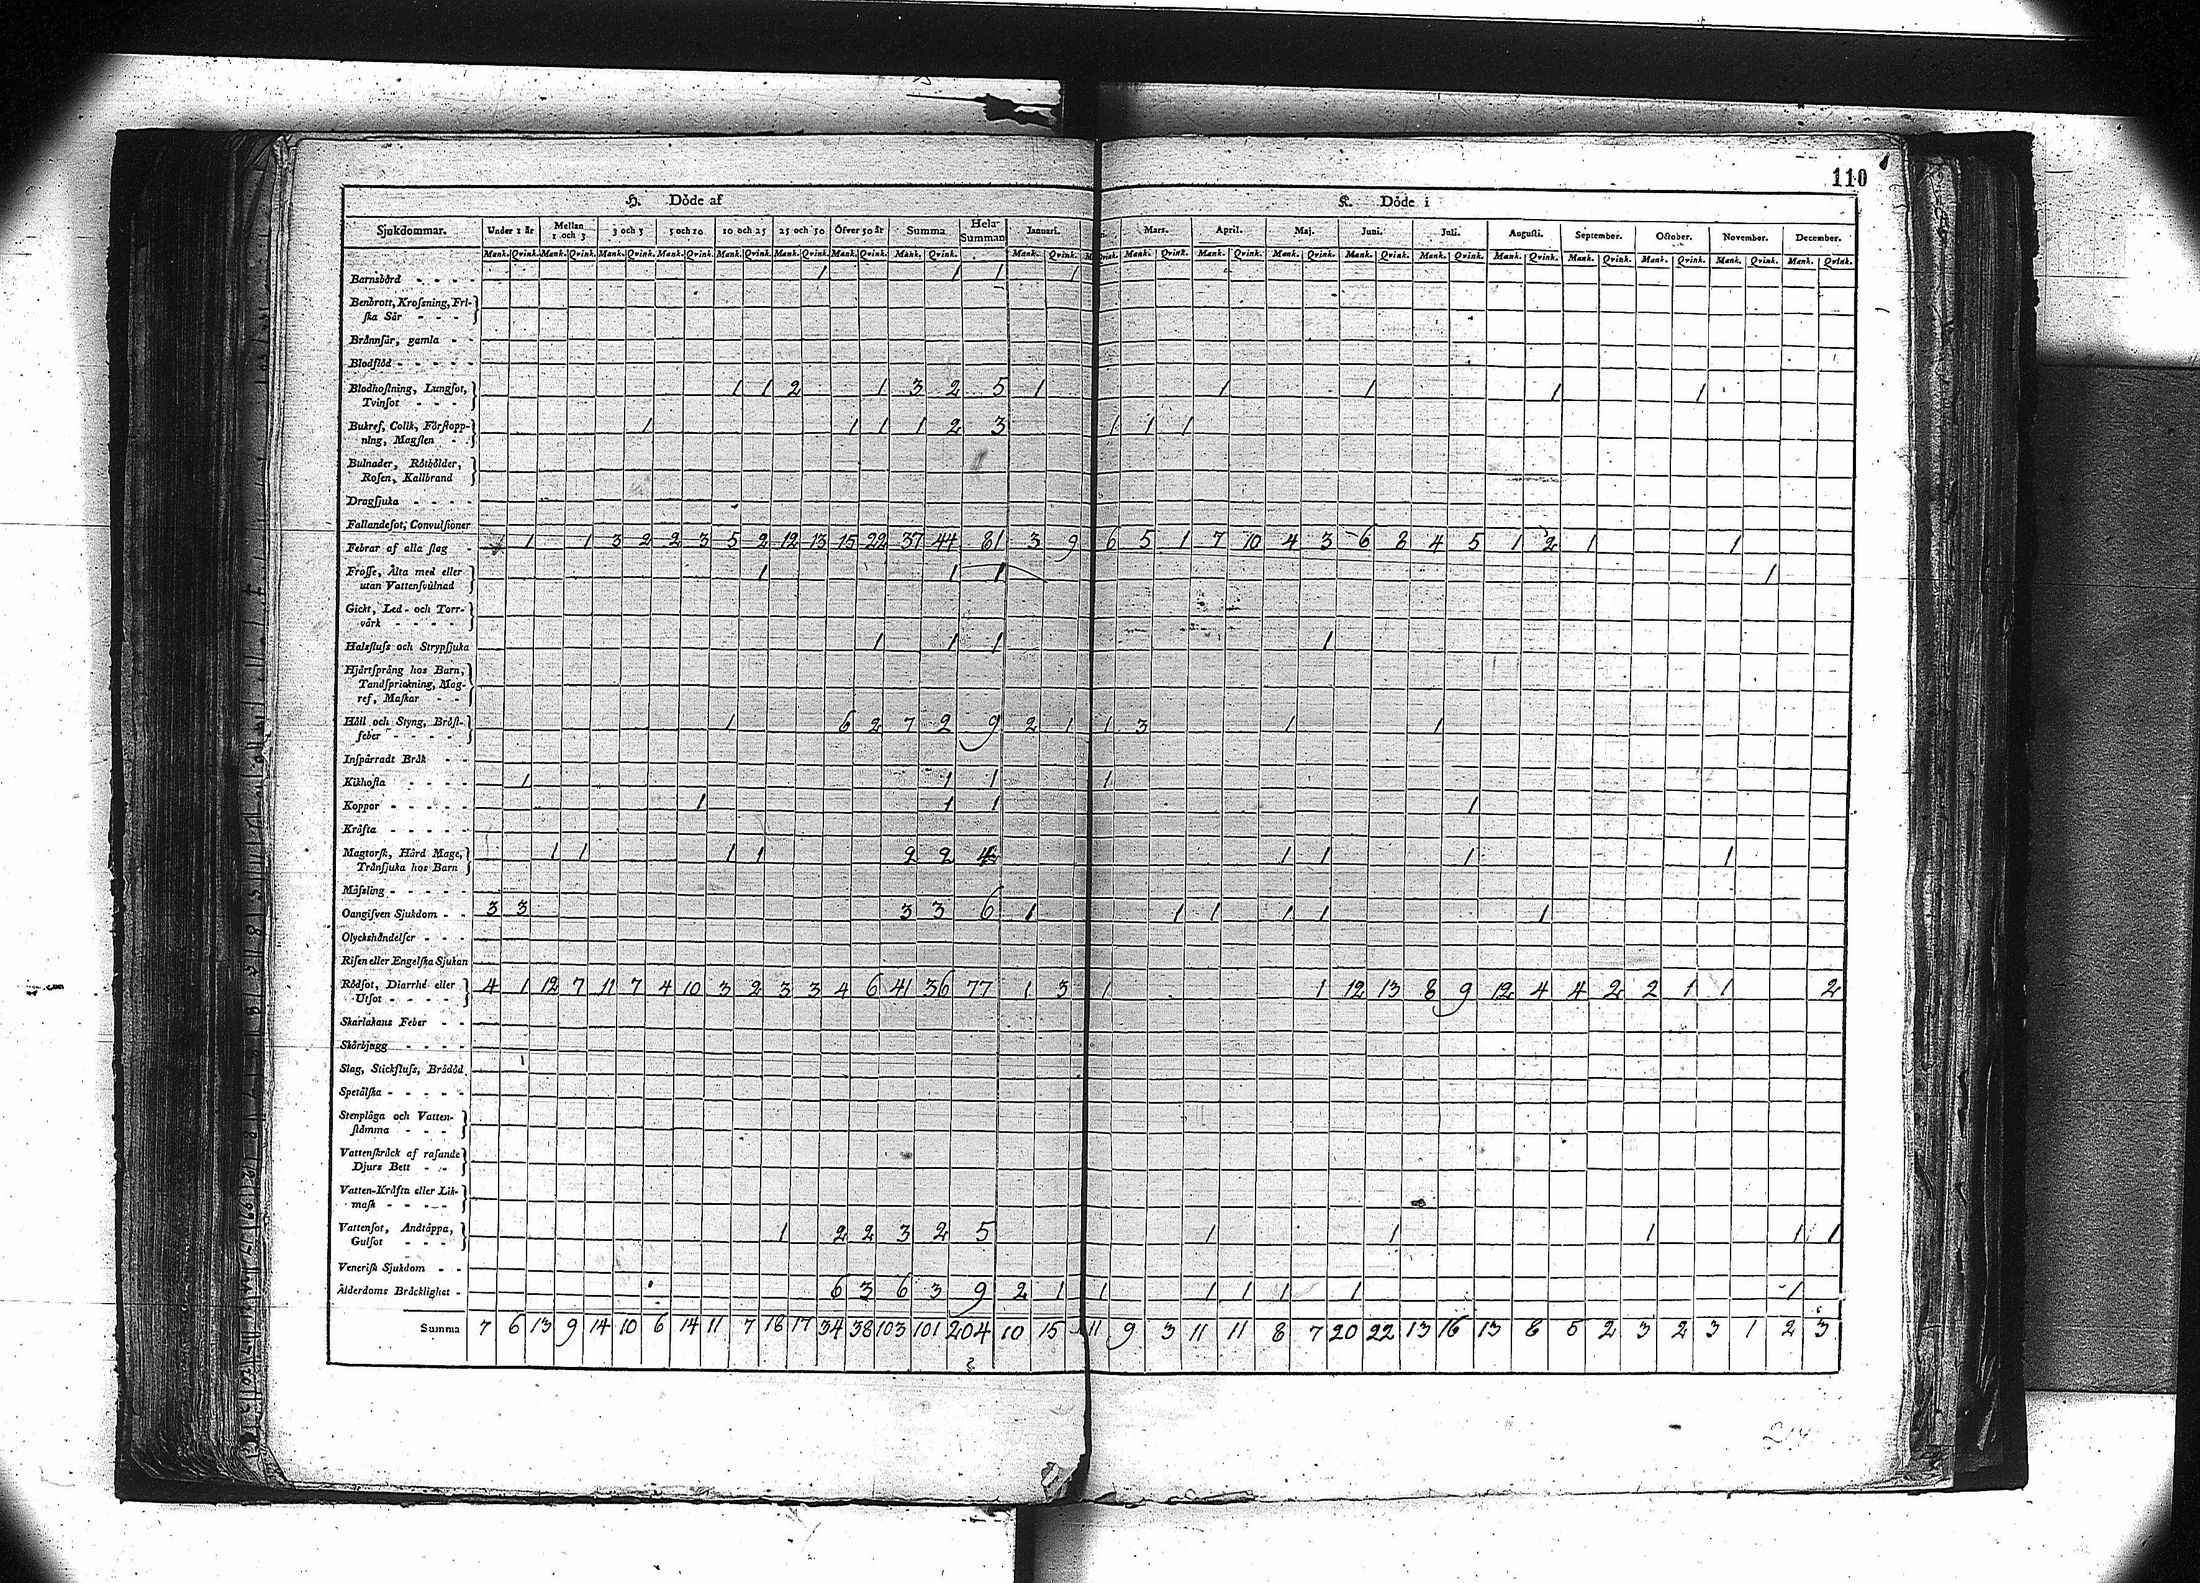 110
H. Döde af K. Döde i
Sjukdommar. Under 1 år Mellan 1 och 3 3 och 5 5 och 10 10 och 25 25 och 50 Öfver 50 år Summa Hela Summan Januari. Mars. April. Maj. Juni. Juli. Augusti. September. October. November. December.
Mank. Qvink. Mank. Qvink. Mank. Qvink. Mank. Qvink. Mank. Qvink. Mank. Qvink. Mank. Qvink. Mank. Qvink. Mank. Qvink. Qvink. Mank. Qvink. Mank. Qvink. Mank. Qvink. Mank. Qvink. Mank. Qvink. Mank. Qvink. Mank. Qvink. Mank. Qvink. Mank. Qvink. Mank. Qvink.
Barnsbörd - - - - 1 1 1 1
Benbrott, Krofsning, Fri-
ska Sår - - -
Brännsår, gamla - -
Blodflöd - - - - -
Blodhostning, Lungsot,
Tvinsot - - - 1 1 2 1 3 2 5 1 1 1 1 1
Bukref, Colik, Förstopp-
ning, Magslen - 1 1 1 1 2 3 1 1 1
Bulnader, Rötbölder,
Rosen, Kallbrand
Dragsjuka - - - -
Fallandesot, Convulsioner
Febrar af alla slag - 1 1 3 2 2 3 5 2 12 13 15 22 37 44 81 3 9 6 5 1 7 10 4 3 6 8 4 5 1 2 1 1
Frosse, Älta med eller
utan Vattensvulnad 1 1 1 1
Gickt, Led- och Torr-
värk - - - -
Halsfluss och Strypsjuka 1 1 1 1
Hjärtsprång hos Barn,
Tandsprickning, Mag-
ref, Maskar - -
Håll och Styng, Bröst-
feber - - - - 1 6 2 7 2 9 2 1 1 3 1 1
Inspärradt Bråk - -
Kikhosta - - - - 1 1 1 1
Koppor - - - - - 1 1 1 1
Kräfta - - - - -
Magtorsk, Hård Mage,
Tränsjuka hos Barn 1 1 1 1 2 2 4 1 1 1 1
Mässling - - - - -
Oangifven Sjukdom - - 3 3 3 3 6 1 1 1 1 1 1
Olyckshändelser - - -
Risen eller Engelska Sjukan
Rödsot, Diarrhé eller
Utsot - - - - 4 1 12 7 11 7 4 10 3 2 3 3 4 6 41 36 77 1 3 1 1 12 13 8 9 12 4 4 2 2 1 1 2
Skarlakans Feber - -
Skörbjugg - - - -
Slag, Stickfluss, Brådöd
Spetälska - - - - -
Stenplåga och Vatten-
stämma - - -
Vattenskräck af rasande
Djurs Bett - - -
Vatten-Kräfta eller Lik-
mask - - - - -
Vattensot, Andtäppa,
Gulsot - - - 1 2 2 3 2 5 1 1 1 1 1
Venerisk Sjukdom - -
Ålderdoms Bräcklighet - 6 3 6 3 9 2 1 1 1 1 1 1 1
Summa 7 6 13 9 14 10 6 14 11 7 18 17 34 38 103 101 204 10 15 11 9 3 11 11 8 7 20 22 13 16 13 8 5 2 3 2 3 1 2 3